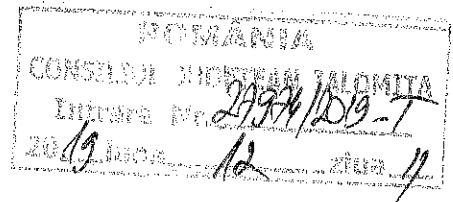 ROMÂNIA
CONSILIUL JUDEŢEAN IALOMIŢA
Intrare Nr. 27974/2019-T
2019 luna 12 ziua